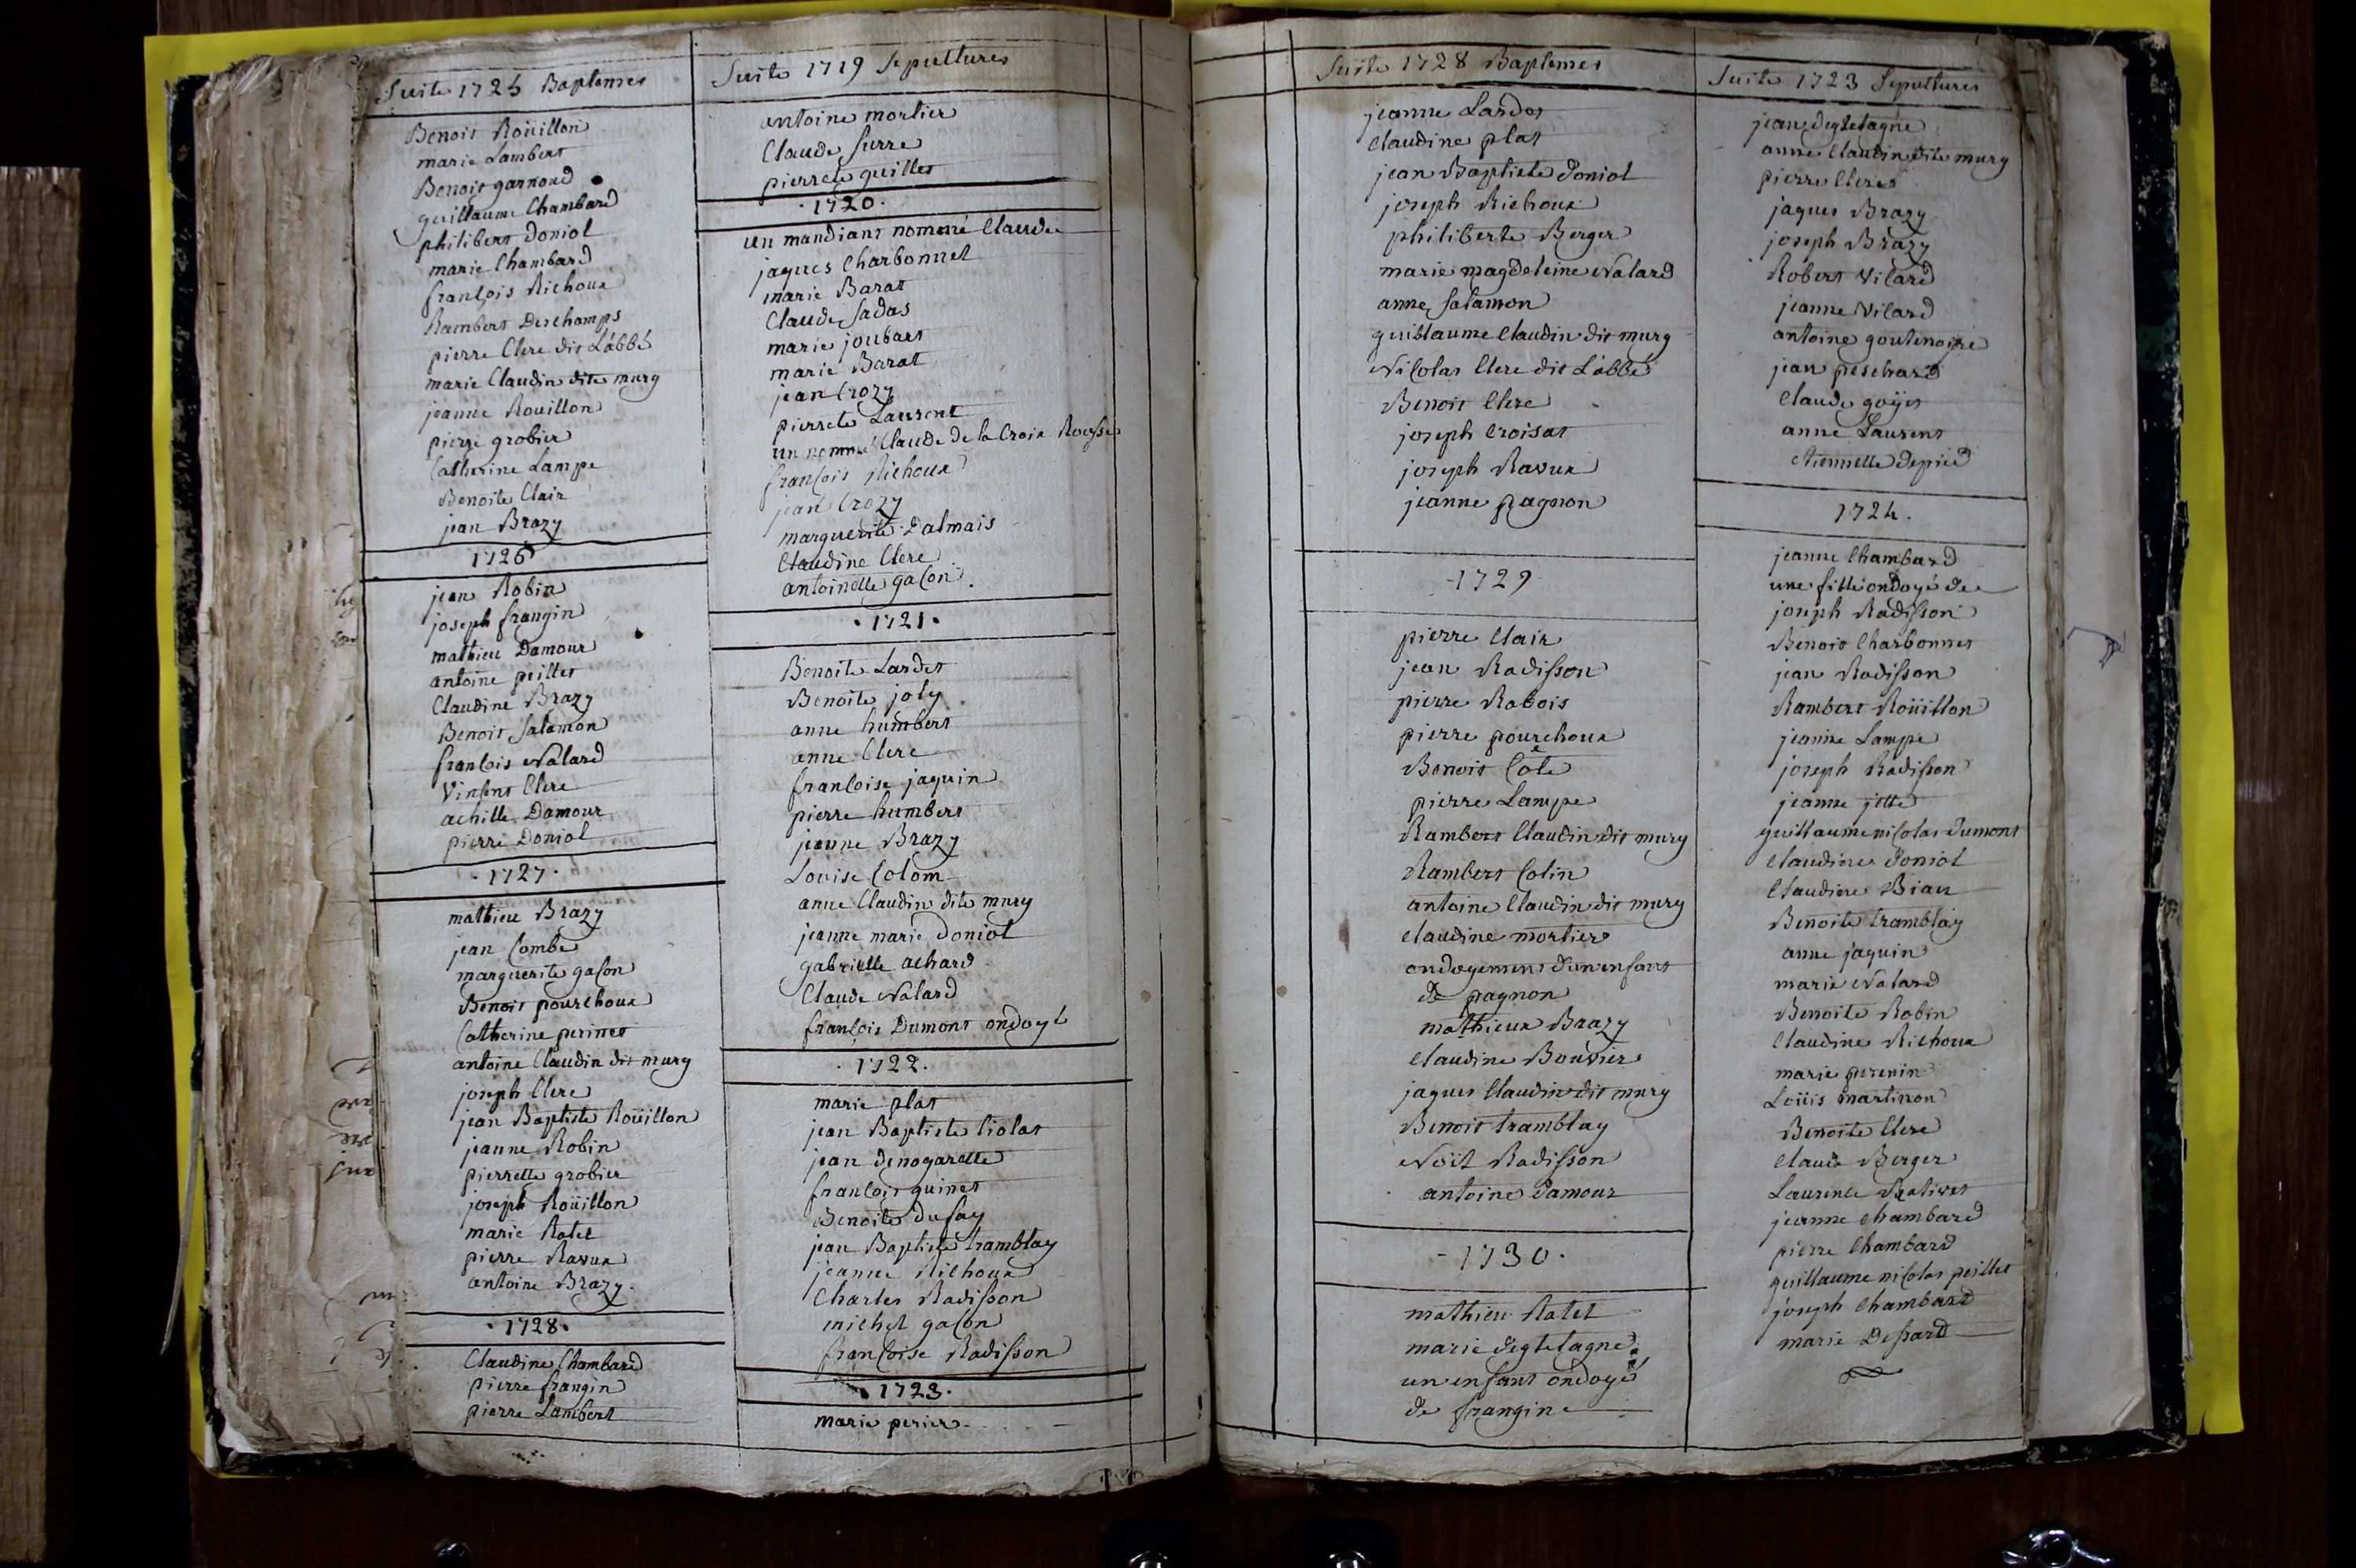 Suite 1725 Baptemes
Benoit Roüillon
marie Lambert
Benoit garnoud
guillaume Chambard
philibert Doniol
marie Chambard
francois Richoux
Rambert Deschamps
pierre Clere dit Labbé
marie Claudin dite mury
jeanne Rouillon
pierre grobier
Catherine Lampe
Benoite Clair
jean Brazy
1726
jean Robin
joseph frangin
mathieu Damour
antoine peillet
Claudine Brazy
Benoit Salamon
francois Nalard
Vinsent Clere
achille Damour
pierre Doniol
1727
mathieu Brazy
jean Combe
marguerite gacon
Benoit pourchoux
Catherine perinet
antoine Claudin dit mury
joseph Clere
jean Baptiste Roüillon
jeanne Robin
pierrette grobier
joseph Roüillon
marie Ratel
pierre Ravux
antoine Brazy
1728
Claudine Chambard
pierre frangin
pierre Lambert
Suite 1719 Sepultures
antoine mortier
Claude Surre
pierrete guillet
1720
un mandiant nommé Claude
jaques Charbonnet
marie Barat
Claude Sadas
marie joubart
marie Barat
jean Crozy
pierrete Laurent
un nommé Claude de la Croix Rousse
francois Richoux
jean Crozy
marguerite Dalmais
Claudine Clere
antoinette gacon
1721
Benoite Lardet
Benoite joly
anne humbert
anne Clere
francoise jaquin
pierre humbert
jeanne Brazy
Louise Colom
anne Claudin dite mury
jeanne marie Doniol
gabrielle achard
Claude Nalard
francois Dumont ondoyé
1722
marie plat
jean Baptiste liolat
jean denogarette
francois guinet
Benoite Dufay
jean Baptiste tramblay
jeanne Richoux
Charles Radisson
michel gacon
francoise Radisson
1723
marie perier
Suite 1728 Baptemes
jeanne Lardet
Claudine plat
jean Baptiste Doniol
joseph Richoux
philiberte Berger
marie magdeleine Nalard
anne Salamon
guillaume Claudin dit mury
Nicolas Clere dit Labbé
Benoit Clere
joseph Croisat
joseph Ravux
jeanne pagnon
1729
pierre Clair
jean Radisson
pierre Rabois
pierre pourchoux
Benoit Côte
pierre Lampe
Rambert Claudin dit mury
Rambert Colin
antoine Claudin dit mury
Claudine mortier
ondoyement d'un enfant
de pagnon
mathieux Brazy
Claudine Bouvier
jaques Claudin dit mury
Benoit tramblay
Noël Radisson
antoine Damour
1730
mathieu Ratel
marie degletagne
un enfant ondoyé
de frangin
Suite 1723 Sepultures
jean degletagne
anne Claudin dite mury
pierre Cleret
jaques Brazy
joseph Brazy
Robert Vilard
jeanne Vilard
antoine goutenoire
jean peschard
Claude goÿet
anne Laurent
etiennette depied
1724
jeanne Chambard
une fille ondoyé de
joseph Radisson
Benoit Charbonnet
jean Radisson
Rambert Roüillon
jeanne Lampe
joseph Radisson
jeanne jette
guillaume nicolas dumont
Claudine Doniol
Claudine Biau
Benoite tramblay
anne jaquin
marie Nalard
Benoite Robin
Claudine Richoux
marie perenin
Loüis martinon
Benoite Clere
Claude Berger
Laurence
jeanne Chambard
pierre Chambard
guillaume nicolas peillet
joseph Chambard
marie Dessard